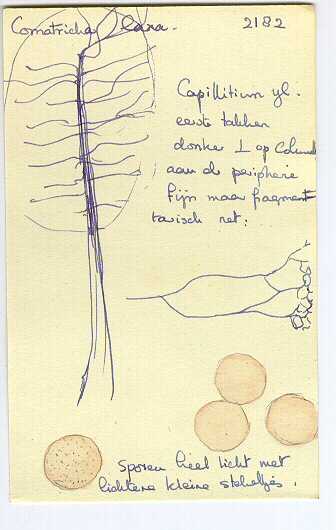 Comatricha laxa. 2182
Capillitium yl.
eerste takken
donker ⊥ op Column
aan de peripherie
fijn maar fragment
tarisch net.
Sporen heel licht met
lichtere kleine stekeltjes.